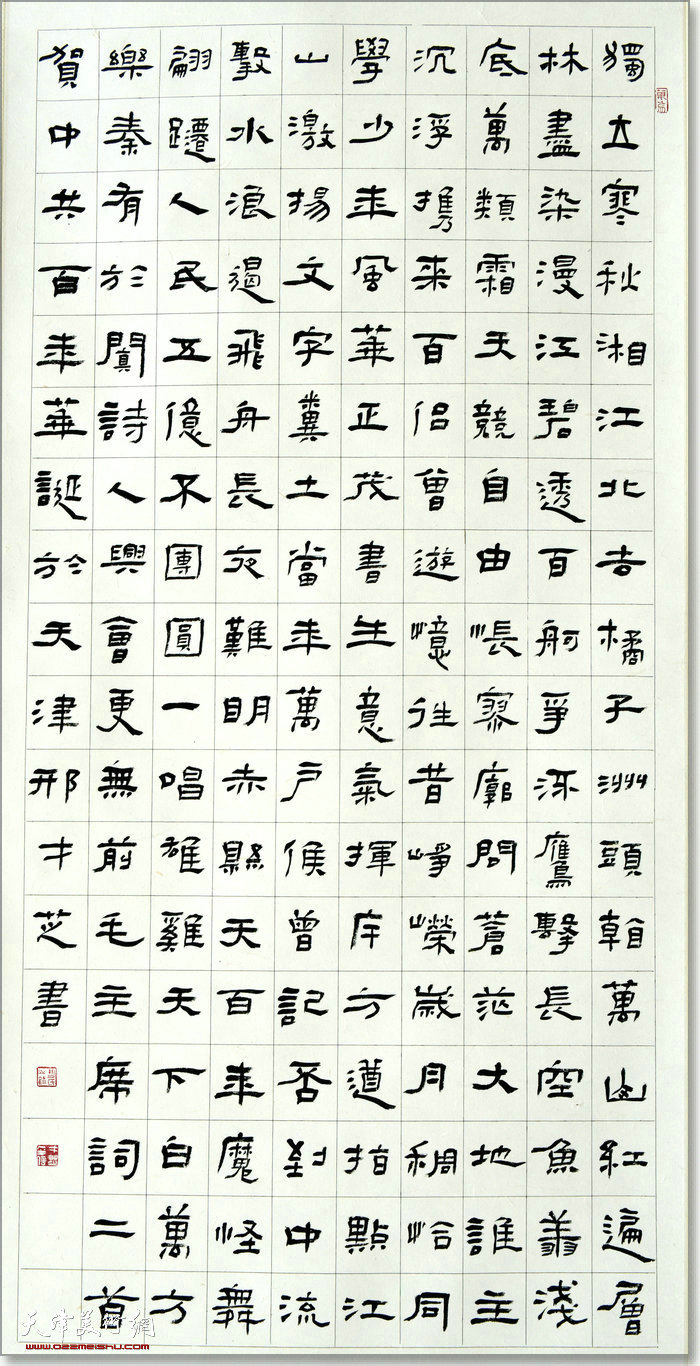 獨立寒秋湘江北去橘子洲頭看萬山紅遍層
林盡染漫江碧透百舸爭流鷹擊長空魚翔淺
底萬類霜天競自由悵寥廓問蒼茫大地誰主
沉浮携来百侶曾遊憶往昔崢嶸歲月稠恰同
學少年風華正茂書生意氣揮斥方遒指點江
山激揚文字糞土當年萬戶侯曾記否到中流
擊水浪遏飛舟長夜難明赤縣天百年魔怪舞
翩躚人民五億不團圓一唱雄雞天下白萬方
樂奏有於闐詩人興會更無前毛主席詞二首
賀中共百年華誕於天津邢才芝書
天津美術網
www.022meishu.com